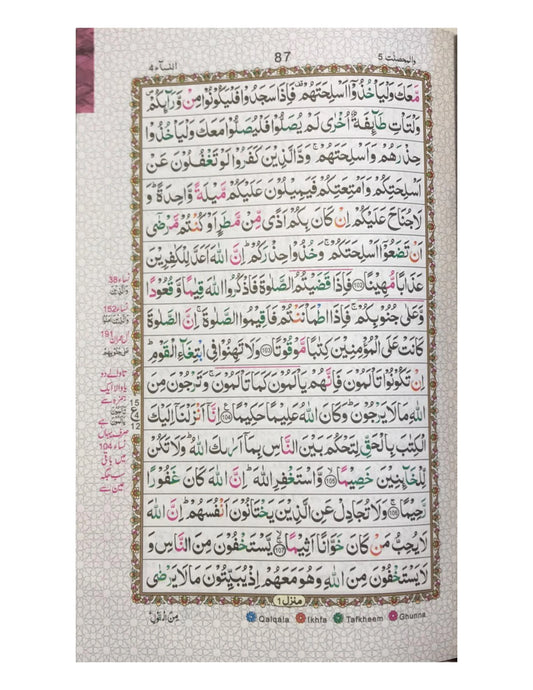 النسآء ٤
87
والمحصنت ٥
مَّعَكَ وَلْيَاْخُذُوْۤا اَسْلِحَتَهُمْ ۫ فَاِذَا سَجَدُوْا فَلْيَكُوْنُوْا مِنْ وَّرَآىِٕكُمْ ۪
وَلْتَاْتِ طَآىِٕفَةٌ اُخْرٰى لَمْ يُصَلُّوْا فَلْيُصَلُّوْا مَعَكَ وَلْيَاْخُذُوْا
حِذْرَهُمْ وَاَسْلِحَتَهُمْ ۚ وَدَّ الَّذِيْنَ كَفَرُوْا لَوْ تَغْفُلُوْنَ عَنْ
اَسْلِحَتِكُمْ وَاَمْتِعَتِكُمْ فَيَمِيْلُوْنَ عَلَيْكُمْ مَّيْلَةً وَّاحِدَةً ؕ وَ
لَا جُنَاحَ عَلَيْكُمْ اِنْ كَانَ بِكُمْ اَذًى مِّنْ مَّطَرٍ اَوْ كُنْتُمْ مَّرْضٰۤى
اَنْ تَضَعُوْۤا اَسْلِحَتَكُمْ ۚ وَخُذُوْا حِذْرَكُمْ ؕ اِنَّ اللّٰهَ اَعَدَّ لِلْكٰفِرِيْنَ
عَذَابًا مُّهِيْنًا 102 فَاِذَا قَضَيْتُمُ الصَّلٰوةَ فَاذْكُرُوا اللّٰهَ قِيٰمًا وَّقُعُوْدًا
وَّعَلٰى جُنُوْبِكُمْ ۚ فَاِذَا اطْمَاْنَنْتُمْ فَاَقِيْمُوا الصَّلٰوةَ ۚ اِنَّ الصَّلٰوةَ
كَانَتْ عَلَى الْمُؤْمِنِيْنَ كِتٰبًا مَّوْقُوْتًا 103 وَلَا تَهِنُوْا فِى ابْتِغَآءِ الْقَوْمِ ؕ
اِنْ تَكُوْنُوْا تَاْلَمُوْنَ فَاِنَّهُمْ يَاْلَمُوْنَ كَمَا تَاْلَمُوْنَ ۚ وَتَرْجُوْنَ مِنَ
اللّٰهِ مَا لَا يَرْجُوْنَ ؕ وَكَانَ اللّٰهُ عَلِيْمًا حَكِيْمًا 104 اِنَّاۤ اَنْزَلْنَاۤ اِلَيْكَ
الْكِتٰبَ بِالْحَقِّ لِتَحْكُمَ بَيْنَ النَّاسِ بِمَاۤ اَرٰىكَ اللّٰهُ ؕ وَلَا تَكُنْ
لِّلْخَآىِٕنِيْنَ خَصِيْمًا 105 وَّاسْتَغْفِرِ اللّٰهَ ؕ اِنَّ اللّٰهَ كَانَ غَفُوْرًا
رَّحِيْمًا 106 وَلَا تُجَادِلْ عَنِ الَّذِيْنَ يَخْتَانُوْنَ اَنْفُسَهُمْ ؕ اِنَّ اللّٰهَ
لَا يُحِبُّ مَنْ كَانَ خَوَّانًا اَثِيْمًا 107 يَّسْتَخْفُوْنَ مِنَ النَّاسِ وَ
لَا يَسْتَخْفُوْنَ مِنَ اللّٰهِ وَهُوَ مَعَهُمْ اِذْ يُبَيِّتُوْنَ مَا لَا يَرْضٰى
منزل 1
نساء 38
نساء 152
191
15
4
12
نساء 104
مِنَ الْقَوْلِ
Qalqala Ikhfa Tafkheem Ghunna